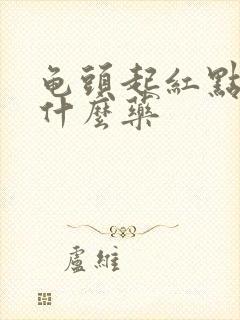 龟頭起紅點
什麼藥
盧維